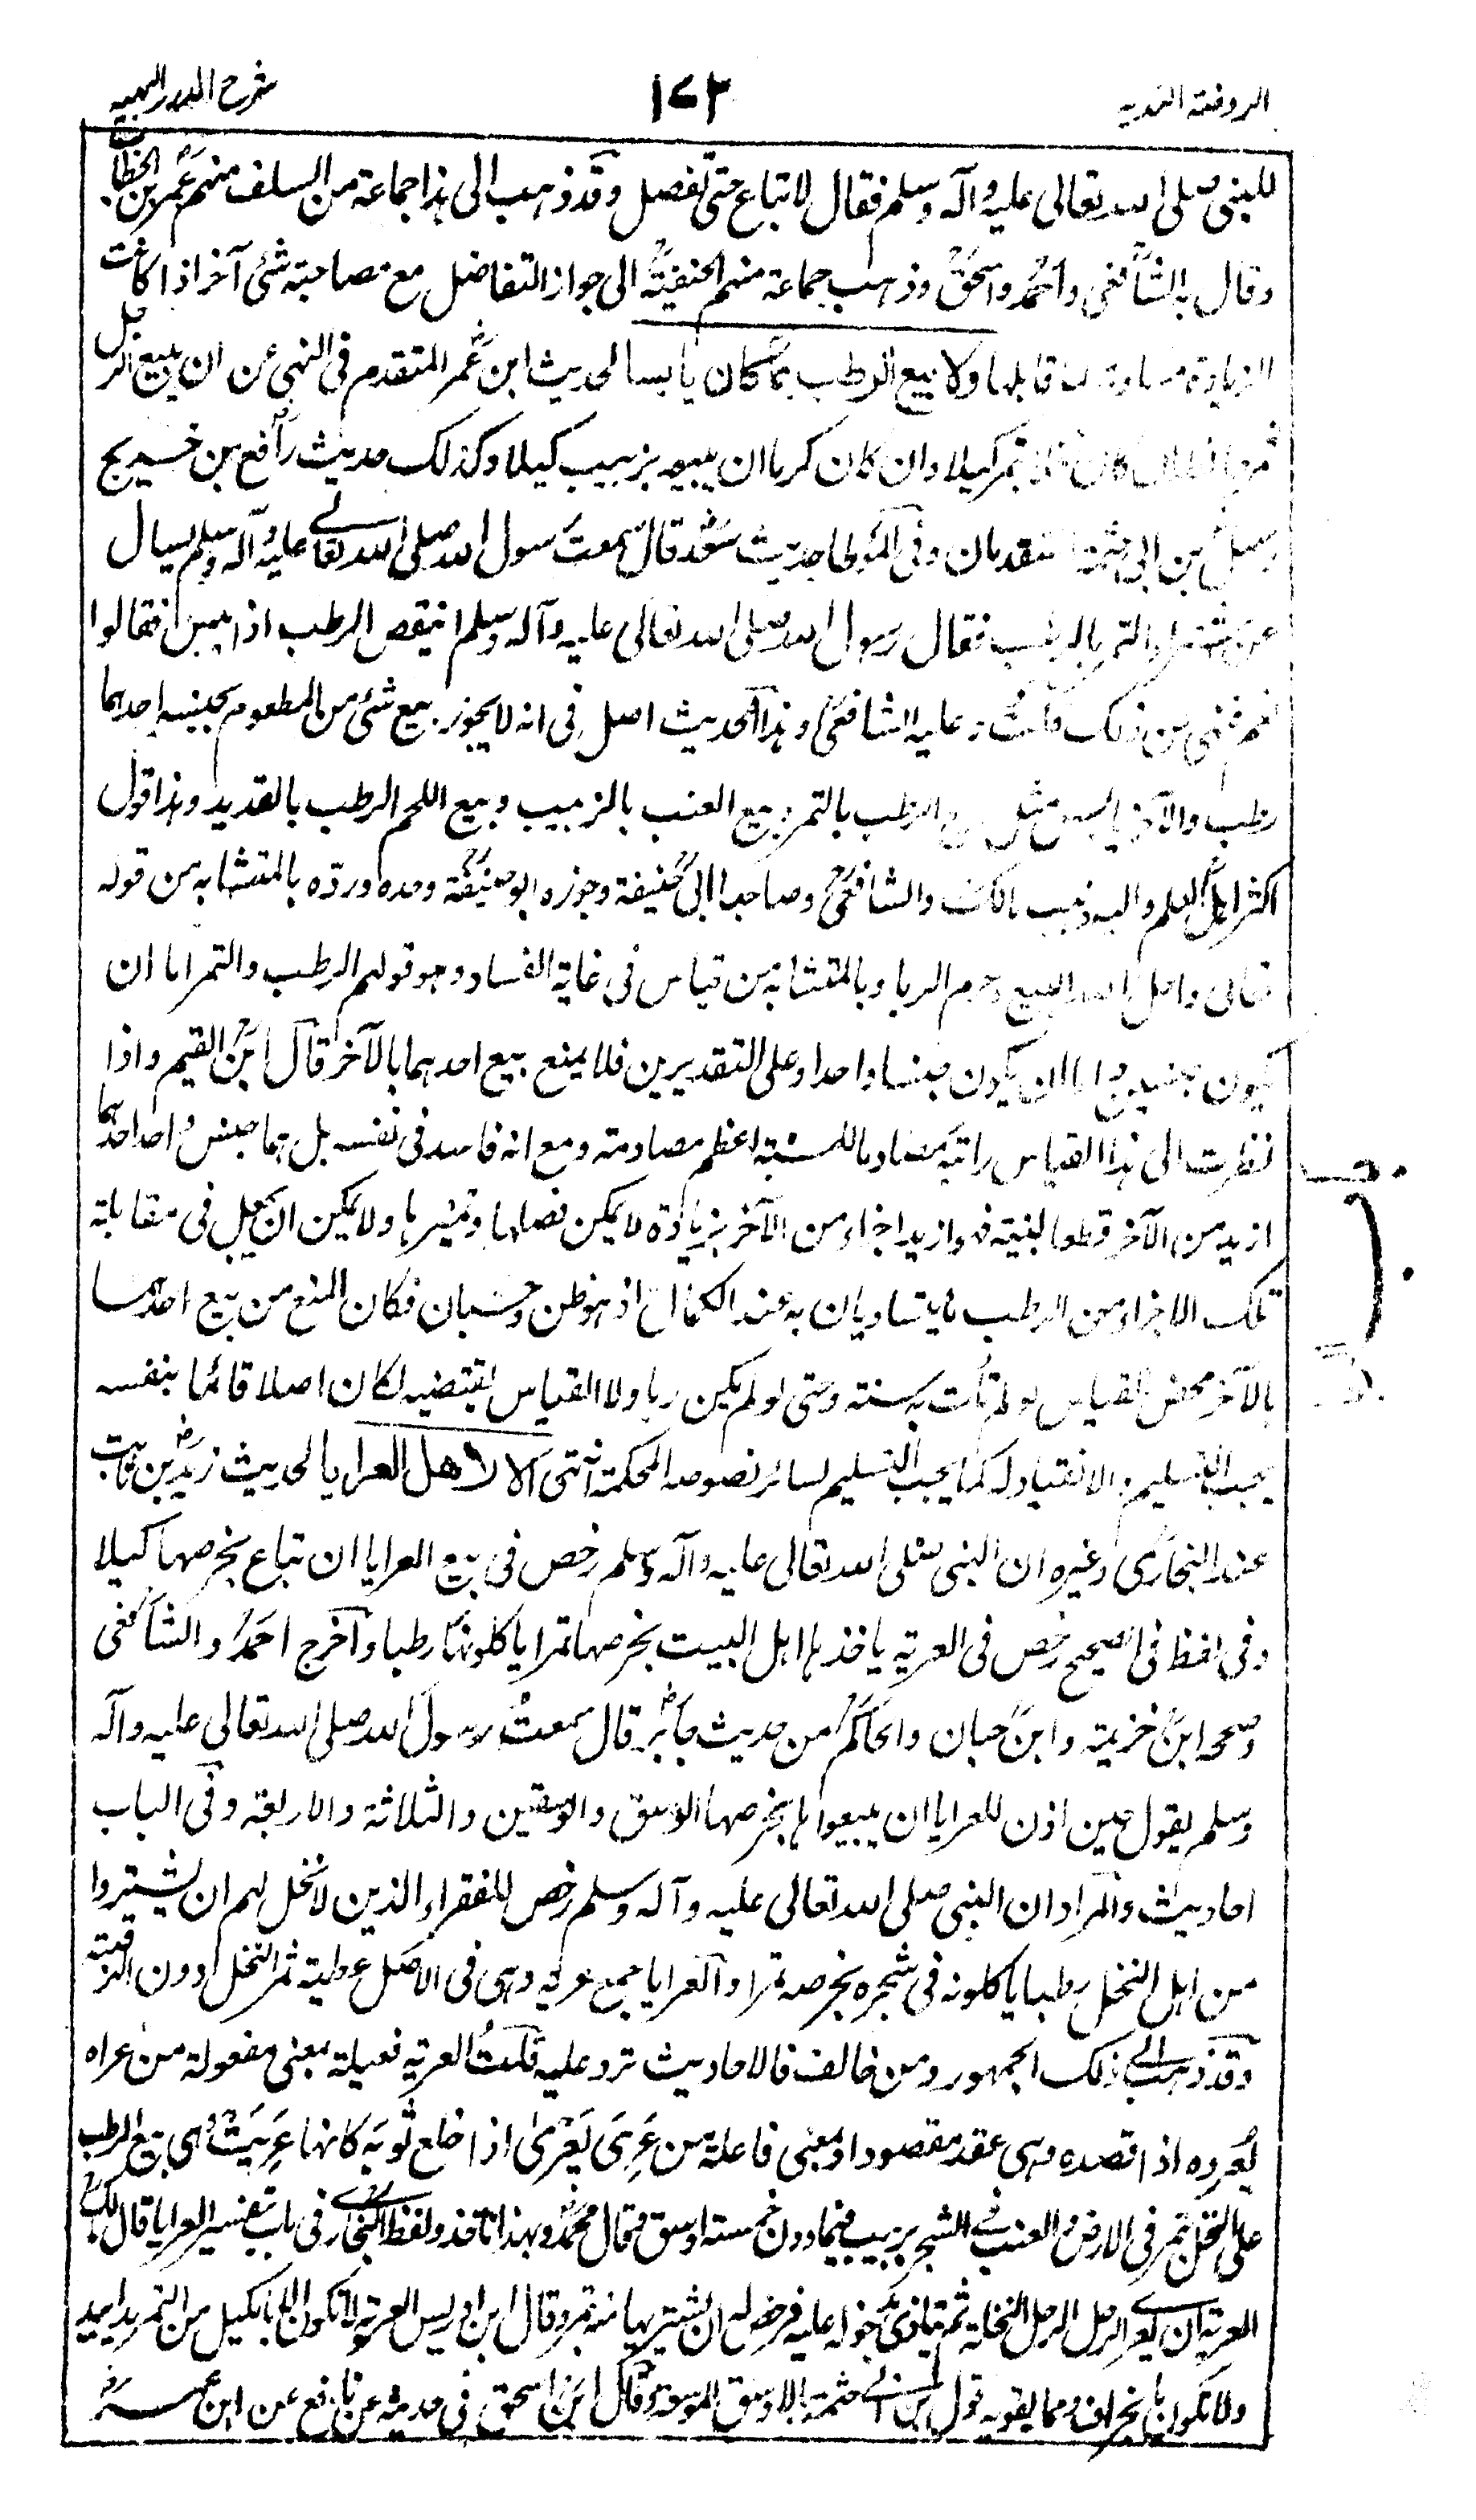 الروضة الندية ١٧٣ شرح الدرر البهية
للنبي صلى الله تعالى عليه وآله وسلم فقال لا تباع حتى تفصل وقد ذهب الى هذا جماعة من السلف منهم عمر بن الخطاب
وقال به الشافعي وأحمد واسحق وذهب جماعة منهم الحنفية الى جواز التفاضل مع مصاحبة شئ آخر اذا كانت
الزيادة مساوية لما قابلها ولا بيع الرطب بما كان يابسا لحديث ابن عمر المتقدم في النهي عن ان يبيع الرجل
ثمر حائطه ان كان نخلا بتمر كيلا وان كان كرما ان يبيعه بزبيب كيلا وكذلك حديث رافع بن خديج
وسهل بن ابي حثمة المتقدمان وفي الموطا حديث سعد قال سمعت رسول الله صلى الله تعالى عليه وآله وسلم يسال
عن اشتراء التمر بالرطب فقال رسول الله صلى الله تعالى عليه وآله وسلم اينقص الرطب اذا يبس فقالوا
نعم فنهى عن ذلك قلت وعليه الشافعي وهذا الحديث اصل في انه لا يجوز بيع شئ من المطعوم بجنسه احدهما
رطب والآخر يابس مثل بيع الرطب بالتمر وبيع العنب بالزبيب وبيع اللحم الرطب بالقديد وهذا قول
اكثر اهل العلم واليه ذهب مالك والشافعي وصاحبا ابي حنيفة وجوزه ابو حنيفة وحده ورده بالمتشابه من قوله
تعالى واحل الله البيع وحرم الربا وبالمتشابه من قياس في غاية الفساد وهو قولهم الرطب والتمر اما ان
يكون جنسين واما ان يكون جنسا واحدا وعلى التقديرين فلا يمنع بيع احدهما بالآخر قال ابن القيم واذا
نظرت الى هذا القياس رايته مصادما للسنة اعظم مصادمة ومع انه فاسد في نفسه بل هما جنس واحد احدهما
ازيد من الآخر قطعا بنيته فهو ازيد اجزاء من الآخر بزيادة لا يمكن فصلها وتميزها ولا يمكن ان يجعل في مقابلة
تلك الاجزاء من الرطب ما يتساويان به عند الكمال اذ هو ظن وحسبان فكان المنع من بيع احدهما
بالآخر محض القياس لو لم تأت به سنة وحتى لو لم يكن ربا ولا القياس يقتضيه لكان اصلا قائما بنفسه
يجب التسليم والانقياد له كما يجب التسليم لسائر نصوصه المحكمة انتهى الا لاهل العرايا لحديث زيد بن ثابت
عند البخاري وغيره ان النبي صلى الله تعالى عليه وآله وسلم رخص في بيع العرايا ان تباع بخرصها كيلا
وفي لفظ في الصحيح رخص في العرية ياخذها اهل البيت بخرصها تمرا ياكلونها رطبا واخرج احمد والشافعي
وصححه ابن خزيمة وابن حبان والحاكم من حديث جابر قال سمعت رسول الله صلى الله تعالى عليه وآله
وسلم يقول حين اذن للعرايا ان يبيعوها بخرصها الوسق والوسقين والثلاثة والاربعة وفي الباب
احاديث والمراد ان النبي صلى الله تعالى عليه وآله وسلم رخص للفقراء الذين لا نخل لهم ان يشتروا
من اهل النخل رطبا ياكلونه في شجره بخرصه تمرا والعرايا جمع عرية وهي في الاصل عطية ثمر النخل دون الرقبة
وقد ذهب الى ذلك الجمهور ومن خالف فالاحاديث ترد عليه قلت العرية فعيلة بمعنى مفعولة من عراه
يعروه اذا قصده وهي عقد مقصود او بمعنى فاعلة من عَرِيَ يَعْرىٰ اذا خلع ثوبه كانها عَرِيَتْ وهي بيع الرطب
على النخل بتمر في الارض والعنب في الشجر بزبيب فيما دون خمسة اوسق قال محمد وبهذا ناخذ ولفظ البخاري في باب تفسير العرايا قال مالك
العرية ان يعري الرجل الرجل النخلة ثم يتاذى بدخوله عليه فرخص له ان يشتريها منه بتمر وقال ابن ادريس العرية لا تكون الا بالكيل من التمر يدا بيد
ولا تكون بالجزاف ومما يقويه قول سهل بن ابي حثمة بالاوسق الموسقة وقال ابن اسحق في حديثه عن نافع عن ابن عمر